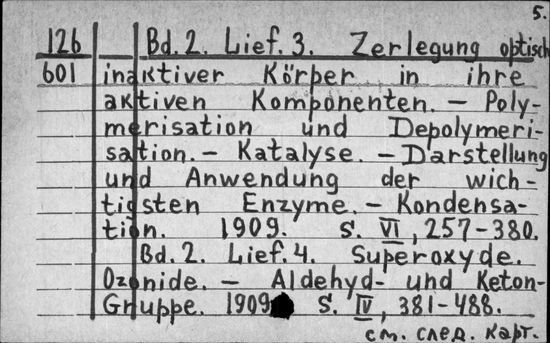 5.
126 Bd. 2. Lief. 3. Zerlegung optisch
601 inaktiver Körper in ihre
aktiven Komponenten. — Poly-
merisation und Depolymeri-
sation. — Katalyse. — Darstellung
und Anwendung der wich-
tigsten Enzyme. — Kondensa-
tion. 1909. S. VI, 257-380.
Bd. 2. Lief. 4. Superoxyde.
Ozonide. — Aldehyd- und Keton-
Gruppe. 1909 S. IV, 381-488.
см. след. карт.